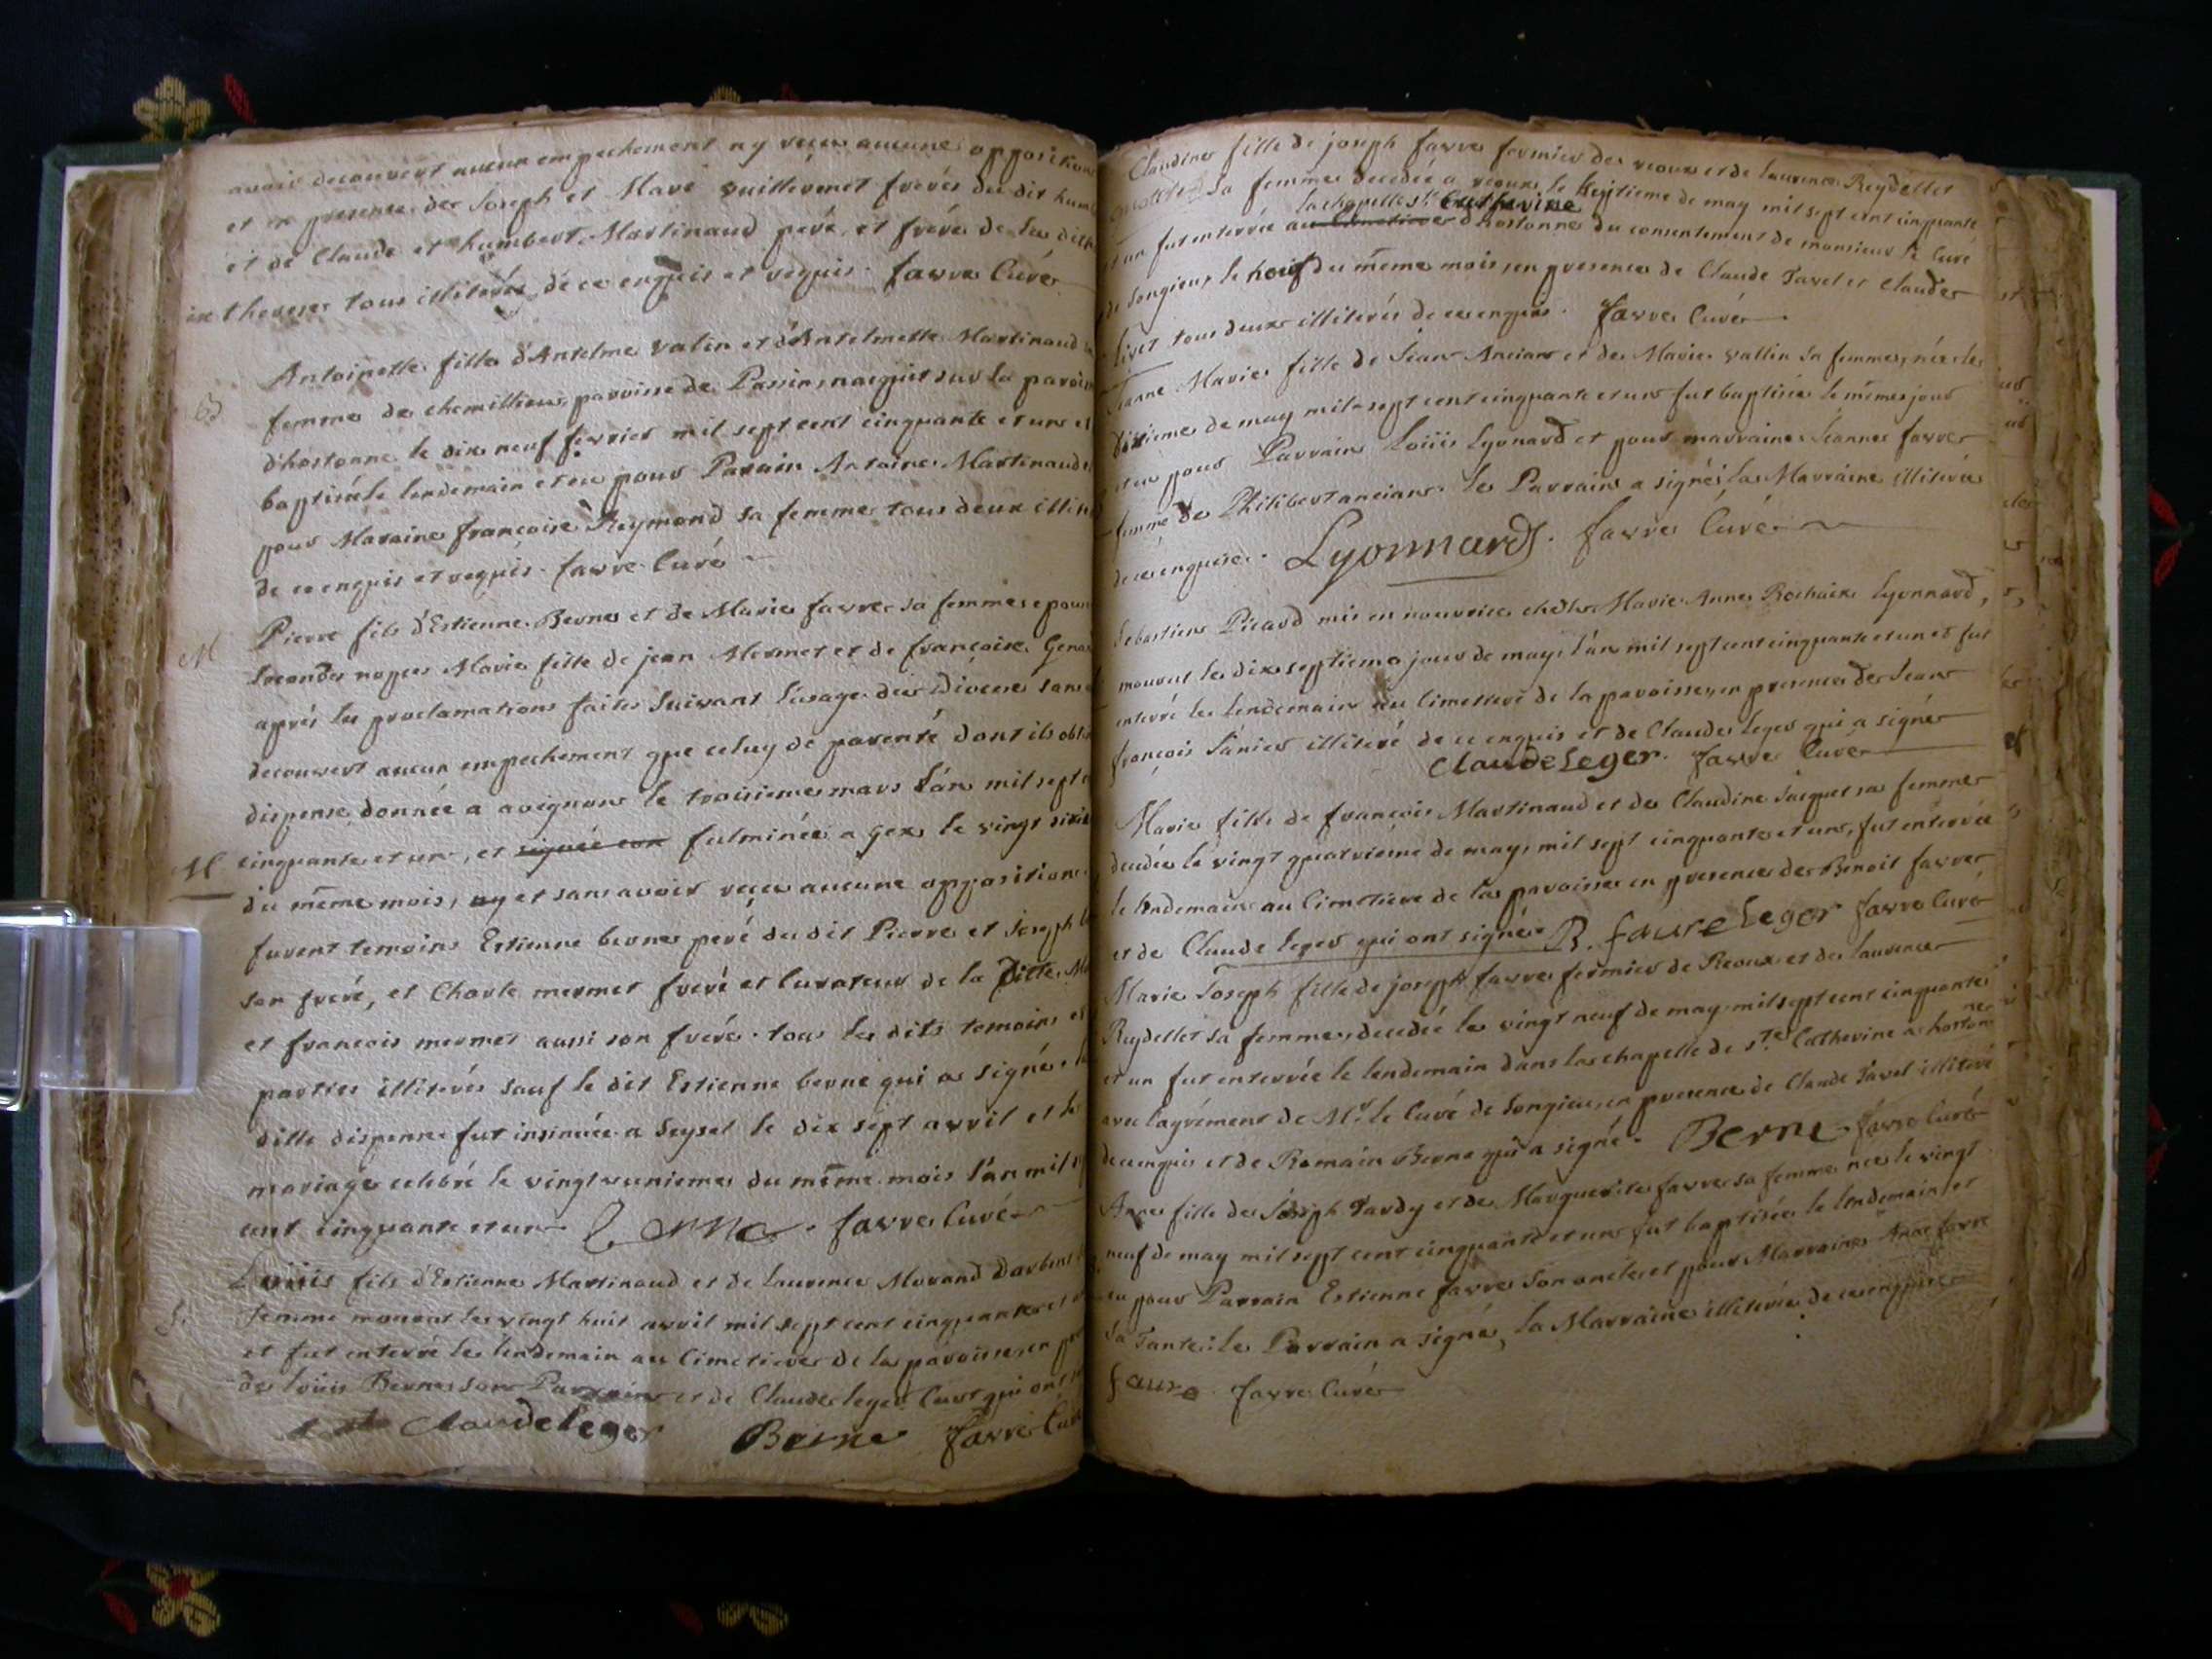 avoir decouvert aucun empechement ny reçu aucune opposition
et en presence de Joseph et Marc vuillermet freres du dit humb
et de Claude et humbert Martinaud peré et fréré de la ditte
tous illiterés de ce enquis et requis. favre Curé
B
Antoinette fille d'Antelme valin et d'Antelmette Martinaud sa
femme de chemillieu, paroisse de Passin, naquit sur la paroisse
d'hostonne le dix neuf fevrier mil sept cent cinquante et un et
baptisée le lendemain et eu pour Parain Antoine Martinaud et
pour Maraine françoise Reymond sa femme tous deux illit
de ce enquis et requis. favre Curé
M
Pierre fils d'Estienne Berne et de Marie favre sa femme epou
secondes nopces Marie fille de jean Mermet et de françoise Gena
aprés les proclamations faites suivant l'usage du Diocese sans
decouvert aucun empechement que celuy de parenté dont ils obt
dispense donnée a avignon le troisieme mars l'an mil sept c
M
cinquante et un, et signée con fulminée a gex le vingt sixie
du même mois, ny et sans avoir reçu aucune opposition
furent temoins Estienne berne peré du dit Pierre et Joseph b
son freré, et Charle mermet freré et Curateur de la ditte Ma
et francois mermet aussi son freré. tous les dits temoins et
parties illiterés sauf le dit Estienne berne qui a signé. la
ditte dispense fut insinuée a Seysel le dix sept avril et le
mariage celebré le vingt unieme du même mois l'an mil s
cent cinquante et un Berne. favre Curé
S.
Loüis fils d'Estienne Martinaud et de Laurence Morand Darbent
femme mourut le vingt huit avril mil sept cent cinquante et
et fut enterré le lendemain au Cimetiere de la paroisse en pre
de loüis Berne son Parrain et de Claude leger Cust qui ont
Claude leger Berne favre Curé
Claudine fille de joseph favre fermier de reoux et de laurence Reydellet
sa femme decedée a reoux le septieme de may mil sept cent cinquante
la chapelle Ste Catherine
et un fut enterrée au Cimetiere d'hostonne du consentement de monsieur le Curé
de Songieu, le neuf du même mois, en presence de Claude Tavel et Claude
livet tous deux illiterés de ce enquis. favre Curé
Jeanne Marie fille de Jean Ancian et de Marie vallin sa femme, née le
dixieme de may mil sept cent cinquante et un fut baptisée le même jour
et eu pour Parrain Loüis Lyonard et pour marraine Jeanne favre
femme de Philibert ancian. le Parrain a signé, la Marraine illiterée
de ce enquise. Lyonnard. favre Curé
Sebastien Picard mis en nourrice chés Marie Anne Rochaix Lyonnard,
mourut le dix septieme jour de may, l'an mil sept cent cinquante et un et fut
enterré le lendemain au Cimettere de la paroisse, en presence de Jean
françois Janier illiteré de ce enquis et de Claude leger qui a signé
Claude Leger. favre Curé
Marie fille de francois Martinaud et de Claudine Jacquet sa femme
decedée le vingt quatrieme de may, mil sept cinquante et un, fut enterrée
le lendemain au Cimetiere de la paroisse en presence de Benoit favre
et de Claude leger qui ont signé. B. faure Leger favre Curé
Marie Joseph fille de joseph favre fermier de Reoux et de laurence
Reydellet sa femme, decedée le vingt neuf de may mil sept cent cinquante
et un fut enterrée le lendemain dans la chapelle de Ste Catherine a hostonne
avec l'agrément de Mr le Curé de Songieu, en presence de Claude Tavel illiteré
de ce enquis et de Romain Berne qui a signé. Berne. favre Curé
Anne fille de Joseph Tardy et de Marguerite favre sa femme née le vingt
neuf de may mil sept cent cinquante et un fut baptisée le lendemain, et
eu pour Parrain Estienne favre Son oncle, et pour Marraine Anne favre
sa Tante: le Parrain a signé, la Marraine illiterée de ce enquise
faure favre Curé